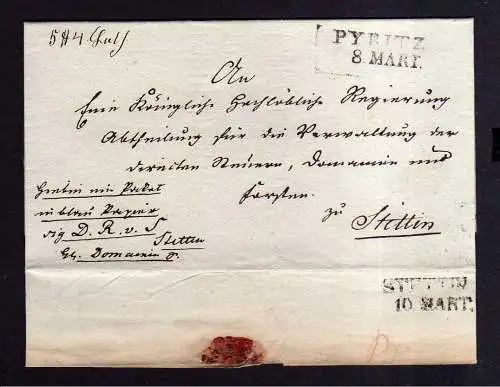 PYRITZ
8 MART.
An
Eine Königliche Hochlöbliche Regierung
Abtheilung für die Verwaltung der
directen Steuern, Domainen und
Forsten.
zu
Stettin
Hiebei ein Paket
in blau Papier
sig D. R. v. S
Stettin
Domainen
STETTIN
10 MART.